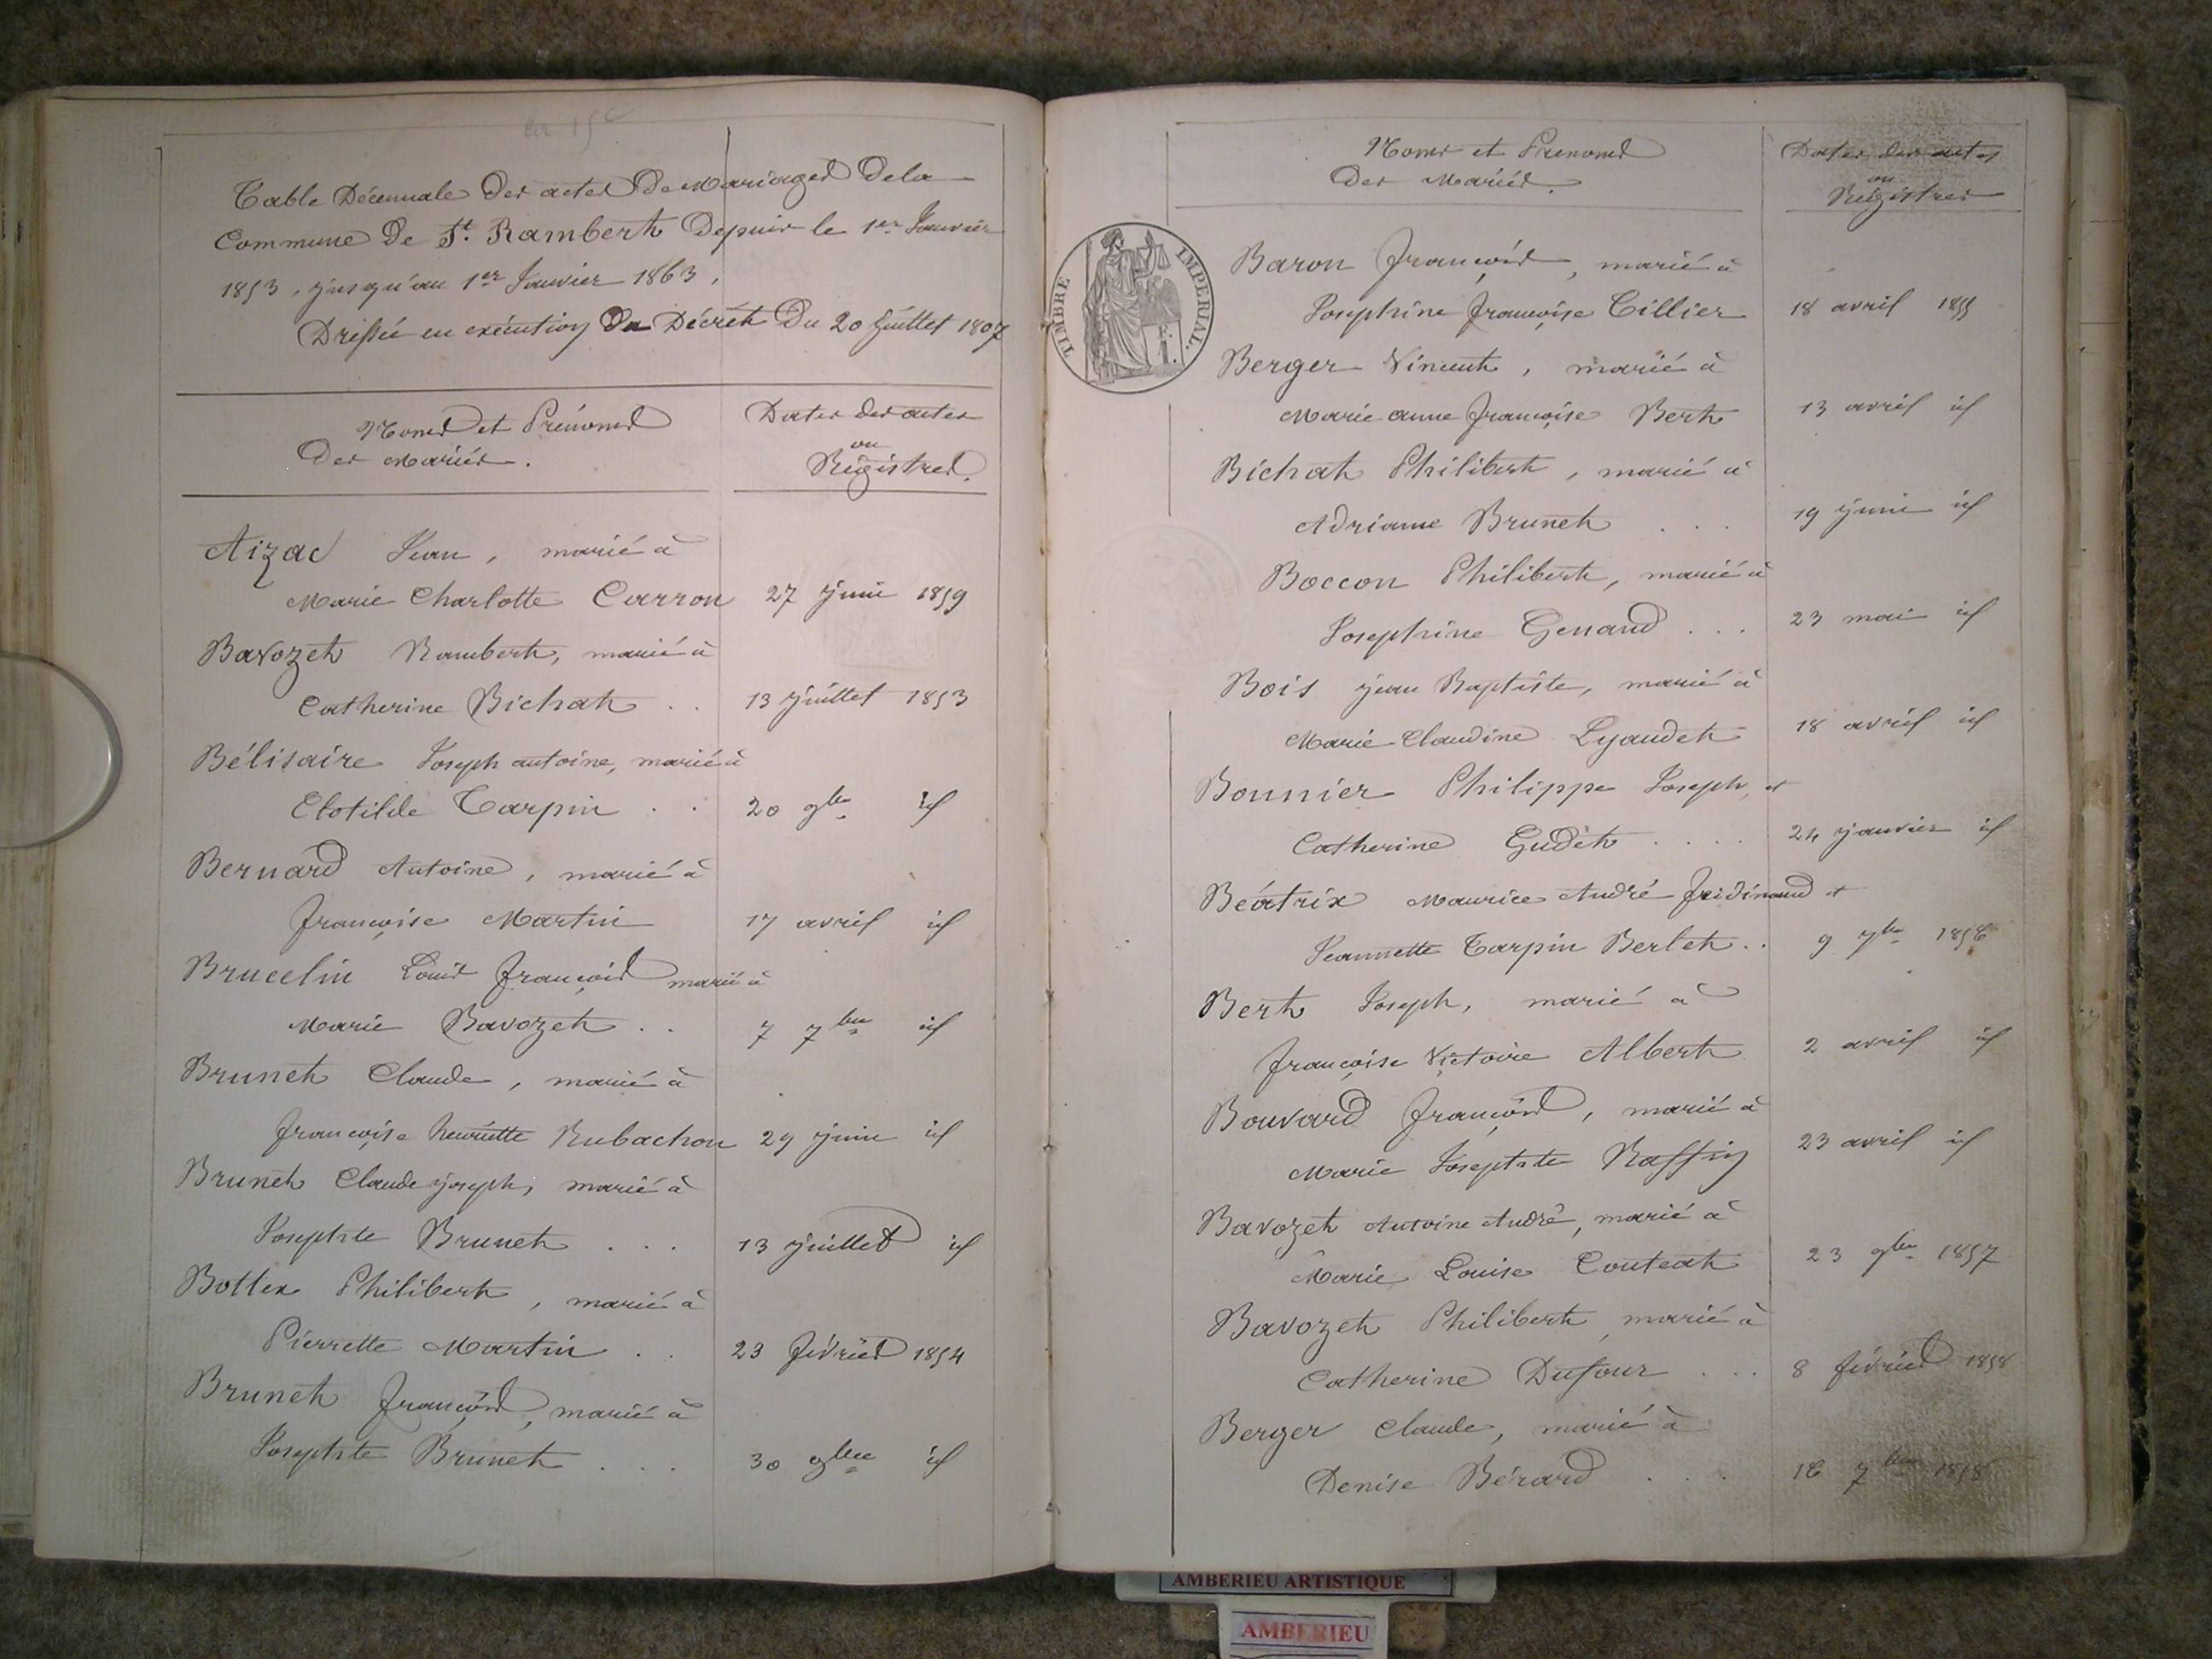 Table Décennale des actes de Mariages de la
Commune de St. Rambert depuis le 1er Janvier
1853, jusqu'au 1er Janvier 1863,
Dressée en exécution du Décret du 20 Juillet 1807
Noms et Prénoms
des Mariés.
Dates des actes
ou
Régistres.
Aizac Jean, marié à
Marie Charlotte Carron 27 juin 1859
Bavozet Rambert, marié à
Catherine Bichat . . 13 juillet 1853
Bélisaire Joseph antoine, marié à
Clotilde Tarpin . . 20 9bre id
Bernard Antoine, marié à
françoise Martin 17 avril id
Brucelin Louis françois marié à
Marie Bavozet . . 7 7bre id
Brunet Claude, marié à
françoise henriette Rubachon 29 juin id
Brunet Claude joseph, marié à
Josephte Brunet . . . 13 juillet id
Bottex Philibert, marié à
Pierrette Martin . . 23 février 1854
Brunet françois, marié à
Josephte Brunet . . . 30 9bre id
Noms et Prénoms
des Mariés.
Dates des actes
ou
Régistres
TIMBRE IMPERIAL.
Baron françois, marié à
Josephine françoise Tillier 18 avril 1855
Berger Vincent, marié à
Marie anne françoise Bert 13 avril id
Bichat Philibert, marié à
Adrianne Brunet . . . 19 juin id
Boccon Philibert, marié à
Josephine Genaud . . . 23 mai id
Bois jean Baptiste, marié à
Marie Claudine Lyaudet 18 avril id
Bonnier Philippe Joseph, et
Catherine Gudet . . . . 24 janvier id
Béatrix Maurice André ferdinand et
Jeannette Tarpin Berlet . . 9 7bre 1856
Bert Joseph, marié à
françoise Victoire Albert 2 avril id
Bouvard françois, marié à
Marie Josephte Raffin 23 avril id
Bavozet Antoine André, marié à
Marie Louise Couteat 23 9bre 1857
Bavozet Philibert, marié à
Catherine Dufour . . . 8 février 1858
Berger Claude, marié à
Denise Bérard . . . 16 7bre 1858
AMBERIEU ARTISTIQUE
AMBERIEU